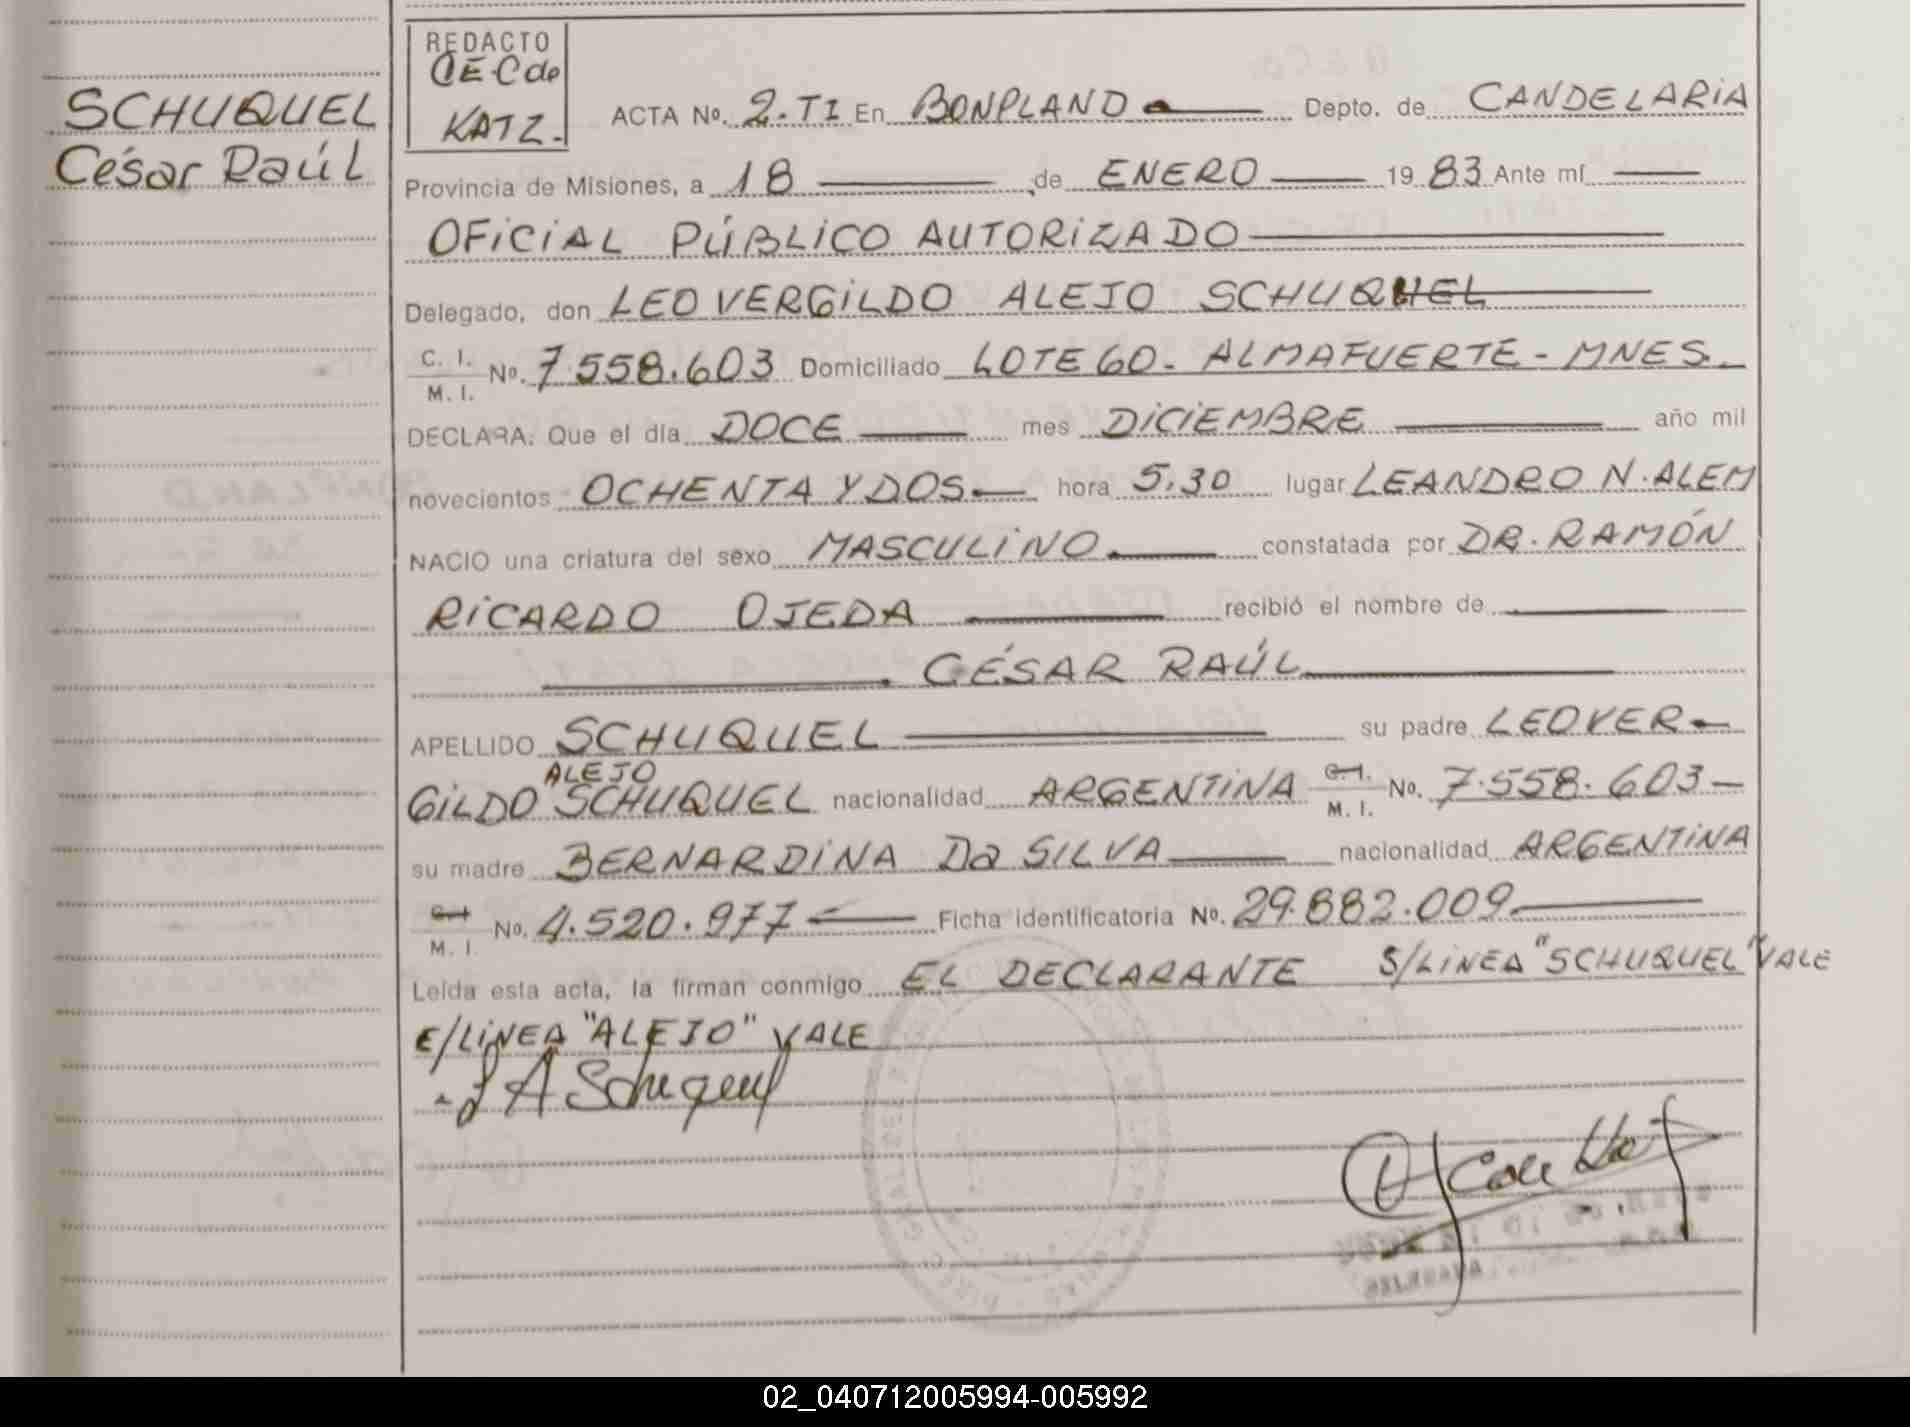 SCHUQUEL
César Raúl
REDACTO
C E. C de
KATZ.
ACTA No. 2. TI En BONPLAND Depto. de CANDELARIA
Provincia de Misiones, a 18 de ENERO 19 83 Ante mí
OFICIAL PÚBLICO AUTORIZADO
Delegado, don LEOVERGILDO ALEJO SCHUQUEL
C. I.
M. I.
No. 7.558.603 Domiciliado LOTE 60. ALMAFUERTE - MNES.
DECLARA: Que el día DOCE mes DICIEMBRE año mil
novecientos OCHENTA Y DOS hora 5.30 lugar LEANDRO N. ALEM
NACIO una criatura del sexo MASCULINO constatada por DR. RAMÓN
RICARDO OJEDA recibió el nombre de
CÉSAR RAÚL
APELLIDO SCHUQUEL su padre LEOVER-
ALEJO
GILDO SCHUQUEL nacionalidad ARGENTINA C. I. M. I. No. 7.558.603-
su madre BERNARDINA Da SILVA nacionalidad ARGENTINA
C. I.
M. I.
No. 4.520.977 Ficha identificatoria No. 29.882.009
Leída esta acta, la firman conmigo EL DECLARANTE S/LINEA "SCHUQUEL" VALE
E/LINEA "ALEJO" VALE
L A Schuquel
02_040712005994-005992